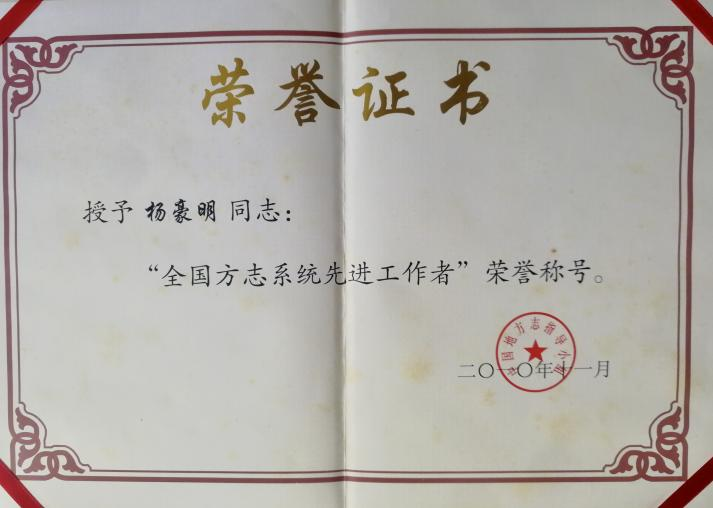 荣誉证书
授予 杨豪明 同志：
“全国方志系统先进工作者”荣誉称号。
中国地方志指导小组
二〇一〇年十一月